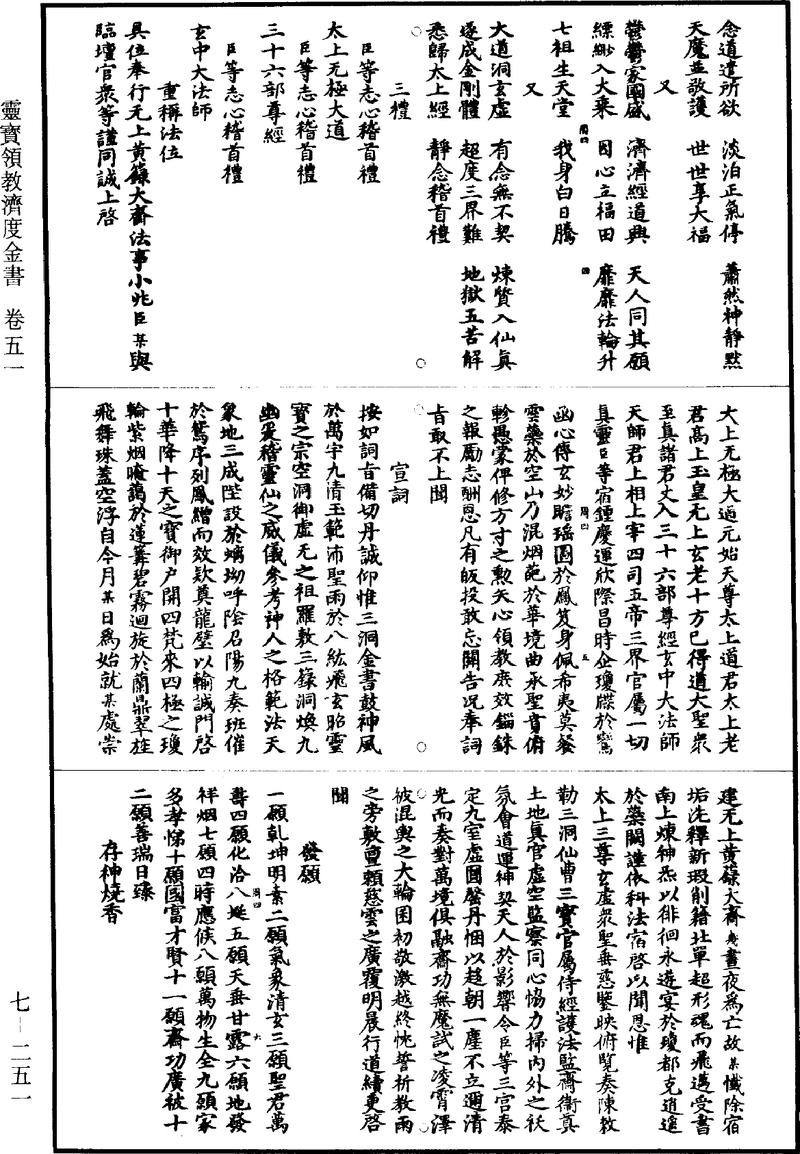 念道遣所欲　淡泊正氣停　蕭然神靜默
天魔並敬護　世世享大福
又
鬱鬱家國盛　濟濟經道興　天人同其願
縹緲入大乘　因心立福田　靡靡法輪升
七祖生天堂　我身白日騰
又
大道洞玄虛　有念無不契　煉質入仙真
遂成金剛體　超度三界難　地獄五苦解
悉歸太上經　靜念稽首禮
三禮
臣等志心稽首禮
太上无極大道
臣等志心稽首禮
三十六部尊經
臣等志心稽首禮
玄中大法師
重稱法位
具位奉行无上黃籙大齋法事小兆臣某與
臨壇官衆等謹同誠上啓
太上无極大道元始天尊太上道君太上老
君高上玉皇无上玄老十方已得道大聖衆
至真諸君丈人三十六部尊經玄中大法師
天師君上相上宰四司五帝三界官屬一切
真靈臣等宿鍾慶運欣際昌時企瓊牒於鸞
函心傳玄妙瞻瑶圖於鳳笈身佩希夷莫餐
雲蘂於空山乃混烟葩於華境曲承聖育俯
軫愚蒙俾修方寸之勳矢心領教庶效錙銖
之報勵志酬恩凡有皈投敢忘關告况奉詞
旨敢不上聞
宣詞
按如詞旨備切丹誠仰惟三洞金書鼓神風
於萬宇九清玉範沛聖雨於八紘飛玄昭靈
寶之宗空洞御虛无之祖羅敷三籙洞煥九
幽爰稽靈仙之威儀參考神人之格範法天
象地三成陛設於螭坳呼陰召陽九奏班催
於鴛序列鳳繒而效款奠龍璧以輸誠門啓
十華降十天之寶御户開四梵來四極之瓊
輪紫烟晻藹於蓮籌碧霧迴旋於蘭鼎翠旌
飛舞珠蓋空浮自今月某日爲始就某處崇
建无上黃籙大齋幾晝夜爲亡故某懺除宿
垢洗釋新瑕削籍北單超形魂而飛邁受書
南上煉神炁以徘徊永遊宴於瓊都克逍遥
於蘂闕謹依科法宿啓以聞恩惟
太上三尊玄虛衆聖垂慈鑒映俯覽奏陳敕
勒三洞仙曹三寶官屬侍經護法監齋衞真
土地真官虛空監察同心恊力掃內外之袄
氛會道運神契天人於影響令臣等三宫泰
定九室虛圓罄丹悃以趍朝一塵不立邇清
光而奏對萬境俱融齋功無魔試之凌霄澤
被混輿之大輪囷初敬激越終忱誓祈教雨
之旁敷亶賴慈雲之廣覆明晨行道續更啓
聞
發願
一願乾坤明素二願氣象清玄三願聖君萬
壽四願化洽八埏五願天垂甘露六願地發
祥烟七願四時應候八願萬物生全九願家
多孝悌十願國富才賢十一願齋功廣被十
二願善瑞日臻
存神燒香
靈寶領教濟度金書　卷五一
七－二五一